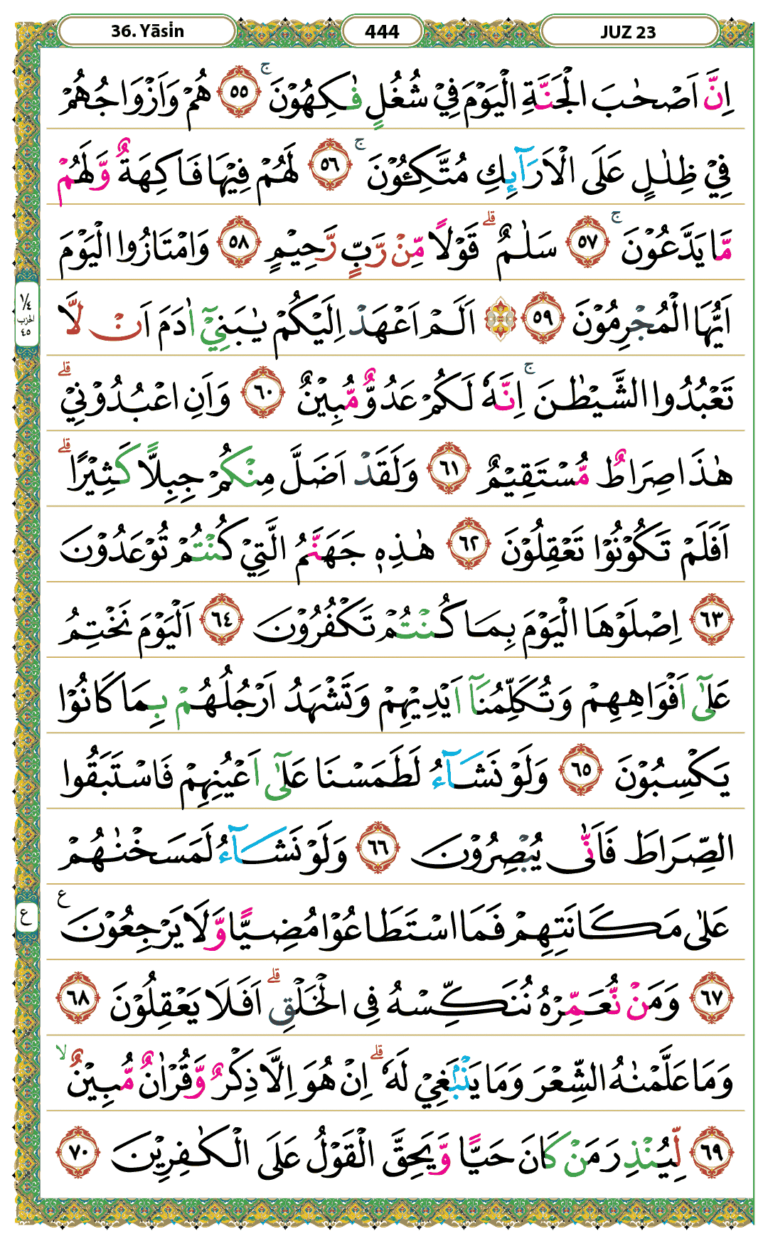 36. Yāsin 444 JUZ 23
اِنَّ اَصْحٰبَ الْجَنَّةِ الْيَوْمَ فِيْ شُغُلٍ فٰكِهُوْنَ ۚ ٥٥ هُمْ وَاَزْوَاجُهُمْ
فِيْ ظِلٰلٍ عَلَى الْاَرَاۤىِٕكِ مُتَّكِـُٔوْنَ ۚ ٥٦ لَهُمْ فِيْهَا فَاكِهَةٌ وَّلَهُمْ
مَّا يَدَّعُوْنَ ۚ ٥٧ سَلٰمٌ ۗ قَوْلًا مِّنْ رَّبٍّ رَّحِيْمٍ ٥٨ وَامْتَازُوا الْيَوْمَ
اَيُّهَا الْمُجْرِمُوْنَ ٥٩ ۞ اَلَمْ اَعْهَدْ اِلَيْكُمْ يٰبَنِيْٓ اٰدَمَ اَنْ لَّا
¼
الحزب
٤٥
تَعْبُدُوا الشَّيْطٰنَ ۚ اِنَّهٗ لَكُمْ عَدُوٌّ مُّبِيْنٌ ٦٠ وَاَنِ اعْبُدُوْنِيْ ۗ
هٰذَا صِرَاطٌ مُّسْتَقِيْمٌ ٦١ وَلَقَدْ اَضَلَّ مِنْكُمْ جِبِلًّا كَثِيْرًا ۗ
اَفَلَمْ تَكُوْنُوْا تَعْقِلُوْنَ ٦٢ هٰذِهٖ جَهَنَّمُ الَّتِيْ كُنْتُمْ تُوْعَدُوْنَ
٦٣ اِصْلَوْهَا الْيَوْمَ بِمَا كُنْتُمْ تَكْفُرُوْنَ ٦٤ اَلْيَوْمَ نَخْتِمُ
عَلٰٓى اَفْوَاهِهِمْ وَتُكَلِّمُنَآ اَيْدِيْهِمْ وَتَشْهَدُ اَرْجُلُهُمْ بِمَا كَانُوْا
يَكْسِبُوْنَ ٦٥ وَلَوْ نَشَاۤءُ لَطَمَسْنَا عَلٰٓى اَعْيُنِهِمْ فَاسْتَبَقُوا
الصِّرَاطَ فَاَنّٰى يُبْصِرُوْنَ ٦٦ وَلَوْ نَشَاۤءُ لَمَسَخْنٰهُمْ
عَلٰى مَكَانَتِهِمْ فَمَا اسْتَطَاعُوْا مُضِيًّا وَّلَا يَرْجِعُوْنَ ࣖ
ع
٦٧ وَمَنْ نُّعَمِّرْهُ نُنَكِّسْهُ فِى الْخَلْقِ ۗ اَفَلَا يَعْقِلُوْنَ ٦٨
وَمَا عَلَّمْنٰهُ الشِّعْرَ وَمَا يَنْۢبَغِيْ لَهٗ ۗ اِنْ هُوَ اِلَّا ذِكْرٌ وَّقُرْاٰنٌ مُّبِيْنٌ ۙ
٦٩ لِّيُنْذِرَ مَنْ كَانَ حَيًّا وَّيَحِقَّ الْقَوْلُ عَلَى الْكٰفِرِيْنَ ٧٠